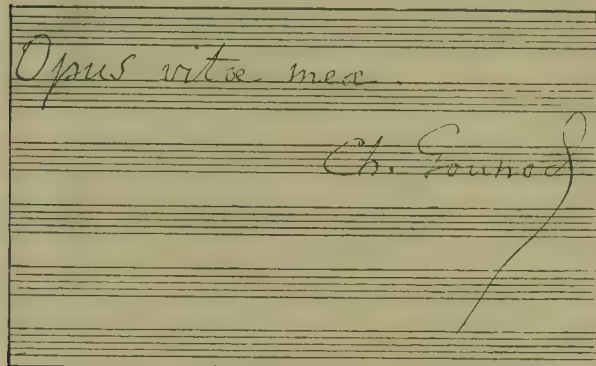 Opus vitæ meæ.
Ch. Gounod